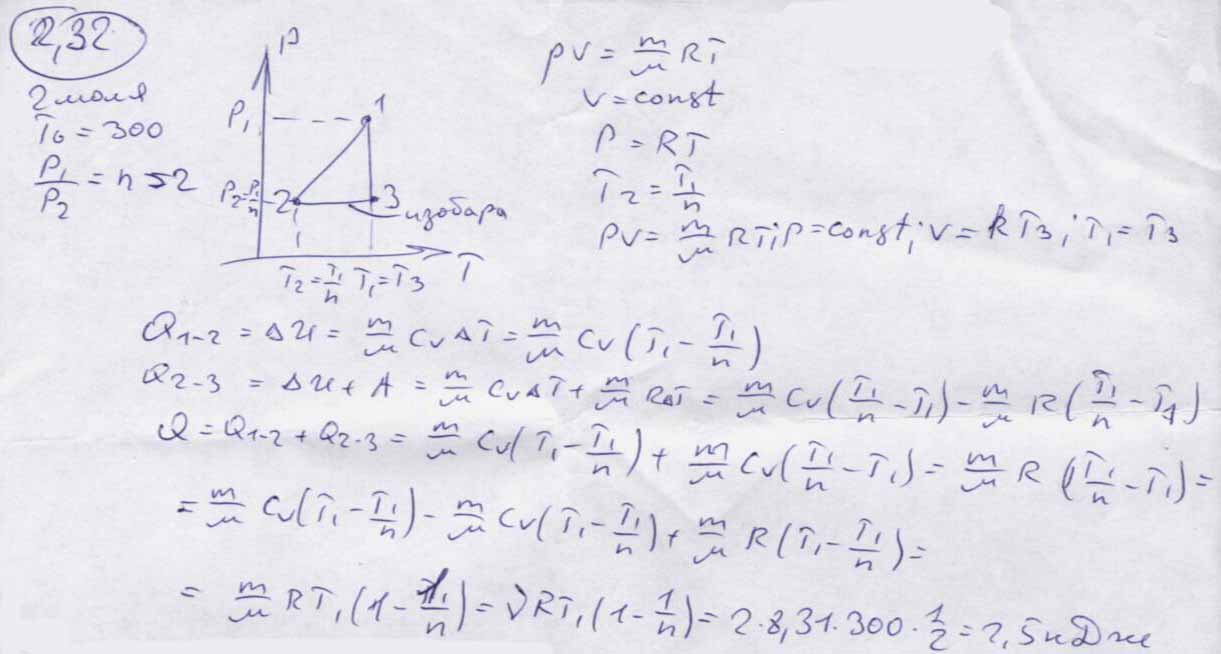 2,32
2 моля
T₀ = 300
P₁/P₂ = n = 2
P
P₁
1
P₂ = P₁/n
2
3
изобара
T₂ = T₁/n T₁ = T₃
T
PV = m/μ RT
V = const
P = RT
T₂ = T₁/n
PV = m/μ RT; P = const; V = RT₃; T₁ = T₃
Q₁₋₂ = ΔU = m/μ Cv ΔT = m/μ Cv (T₁ - T₁/n)
Q₂₋₃ = ΔU + A = m/μ Cv ΔT + m/μ RΔT = m/μ Cv (T₁/n - T₁) - m/μ R (T₁/n - T₁)
Q = Q₁₋₂ + Q₂₋₃ = m/μ Cv (T₁ - T₁/n) + m/μ Cv (T₁/n - T₁) = m/μ R (T₁/n - T₁) =
= m/μ Cv (T₁ - T₁/n) - m/μ Cv (T₁ - T₁/n) + m/μ R (T₁ - T₁/n) =
= m/μ RT₁ (1 - 1/n) = νRT₁ (1 - 1/n) = 2·8,31·300·1/2 = 2,5 кДж